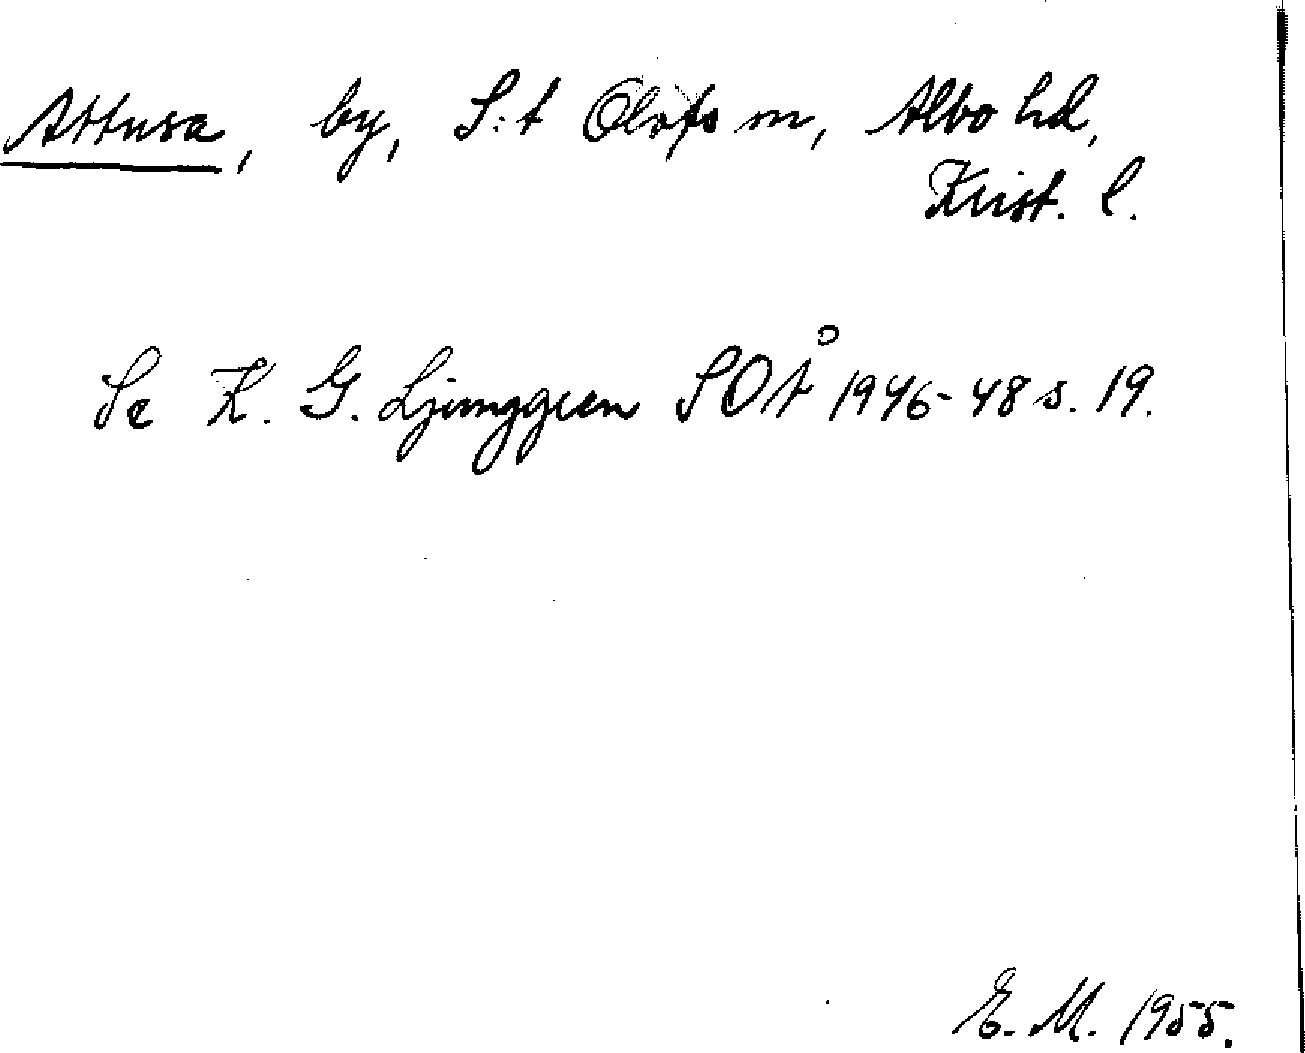 Attusa, by, S:t Olofs sn, Albo hd,
Krist. l.
Se K. G. Ljunggren SOÅ 1946-48 s. 19.
E. M. 1955.